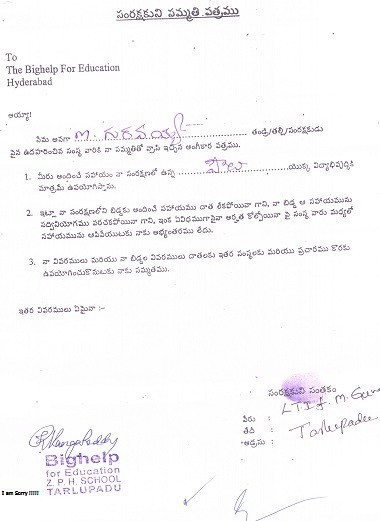 సంరక్షకుని సమ్మతి పత్రము
To
The Bighelp For Education
Hyderabad
అయ్యా!
నేను అనగా M. గురవయ్య తండ్రి/తల్లి/సంరక్షకుడు
పైన ఉదహరించిన సంస్థ వారికి నా సమ్మతితో వ్రాసి ఇచ్చిన అంగీకార పత్రము.
1. మీరు అందించే సహాయం నా సంరక్షణలో ఉన్న యొక్క విద్యాభివృద్ధికి
మాత్రమే ఉపయోగిస్తాను.
2. ఇట్లా నా సంరక్షణలోని బిడ్డకు అందించే సహాయము చాత లేకపోయినా గాని, నా బిడ్డ ఆ సహాయమును
సద్వినియోగము పరచకపోయినా గాని, ఇంక ఏవిధముగానైనా అర్హత కోల్పోయినా పై సంస్థ వారు మధ్యలో
సహాయమును ఆపివేయుటకు నాకు అభ్యంతరము లేదు.
3. నా వివరములు మరియు నా బిడ్డల వివరములు దాతలకు ఇతర సంస్థలకు మరియు ప్రచారము కొరకు
ఉపయోగించుకొనుటకు నాకు సమ్మతము.
ఇతర వివరములు ఏమైనా :-
సంరక్షకుని సంతకం
పేరు : LTI of M.
తేది :
అడ్రసు : Tarlupadu
Bighelp
for Education
Z. P. H. SCHOOL
TARLUPADU
I am Sorry !!!!!